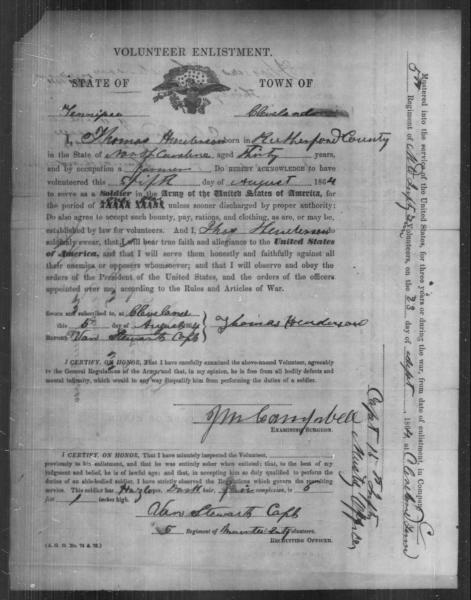 VOLUNTEER ENLISTMENT.
STATE OF TOWN OF
Tennessee Cleveland
I, Thomas Henderson born in Rutherford County
in the State of North Carolina aged Thirty years,
and by occupation a farmer Do HEREBY ACKNOWLEDGE to have
volunteered this Fifth day of August 1864
to serve as a Soldier in the Army of the United States of America, for
the period of unless sooner discharged by proper authority:
Do also agree to accept such bounty, pay, rations, and clothing, as are, or may be,
established by law for volunteers. And I, Thos Henderson do
solemnly swear, that I will bear true faith and allegiance to the United States
of America, and that I will serve them honestly and faithfully against all
their enemies or opposers whomsoever; and that I will observe and obey the
orders of the President of the United States, and the orders of the officers
appointed over me, according to the Rules and Articles of War.
Sworn and subscribed to, at Cleveland
this 5th day of August 1864
BEFORE Van Stewart Capt
Thomas Henderson
I CERTIFY, ON HONOR, That I have carefully examined the above-named Volunteer, agreeably
to the General Regulations of the Army, and that, in my opinion, he is free from all bodily defects and
mental infirmity, which would in any way disqualify him from performing the duties of a soldier.
J M Campbell
EXAMINING SURGEON.
I CERTIFY, ON HONOR, That I have minutely inspected the Volunteer,
previously to his enlistment, and that he was entirely sober when enlisted; that, to the best of my
judgment and belief, he is of lawful age; and that, in accepting him as duly qualified to perform the
duties of an able-bodied soldier, I have strictly observed the Regulations which govern the recruiting
service. This soldier has Hazle eyes, Dark hair, fair complexion, is 5
feet 9 inches high.
Van Stewart Capt
5 Regiment of Volunteers,
RECRUITING OFFICER.
(A. G. O. No. 74 & 76.)
Mustered into the service of the United States, for three years or during the war, from date of enlistment, in Company
5th Regiment of Volunteers, on the 23 day of Sept, 1864, at Cleveland Tenn
Capt
Mustg Officer